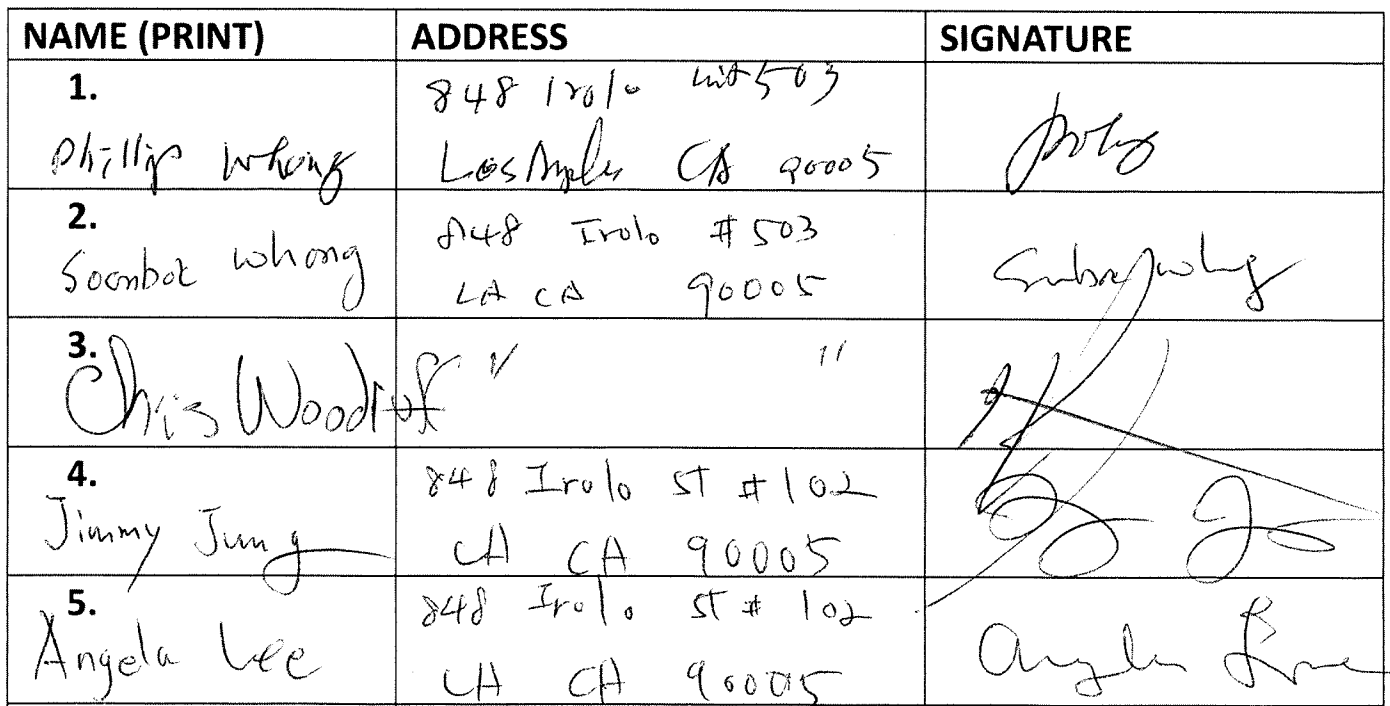 NAME (PRINT) ADDRESS SIGNATURE
1.
Phillip Whong
848 Irolo unit 503
Los Angeles CA 90005
2.
Soonbok Whong
848 Irolo #503
LA CA 90005
3.
Chris Woodruff
" "
4.
Jimmy Jung
848 Irolo ST #102
LA CA 90005
5.
Angela Lee
848 Irolo ST # 102
LA CA 90005